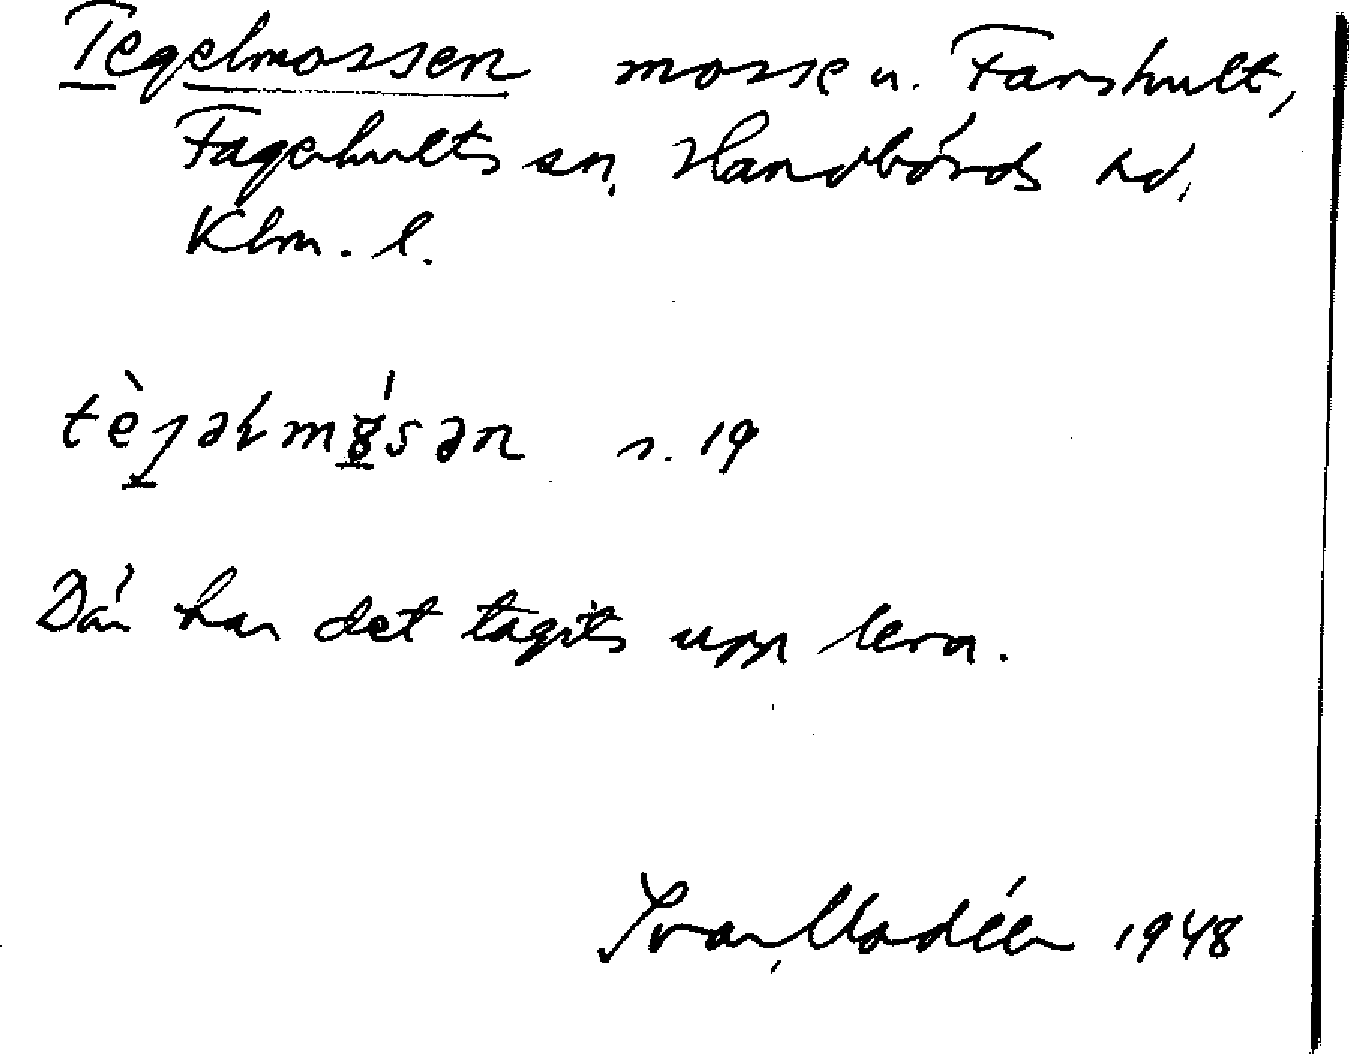 Tegelmossen mosse u. Farshult,
Fagerhults sn, Handbörds hd,
Klm. l.
s. 19
Där har det tagits upp lera.
Ivar Modéer 1948